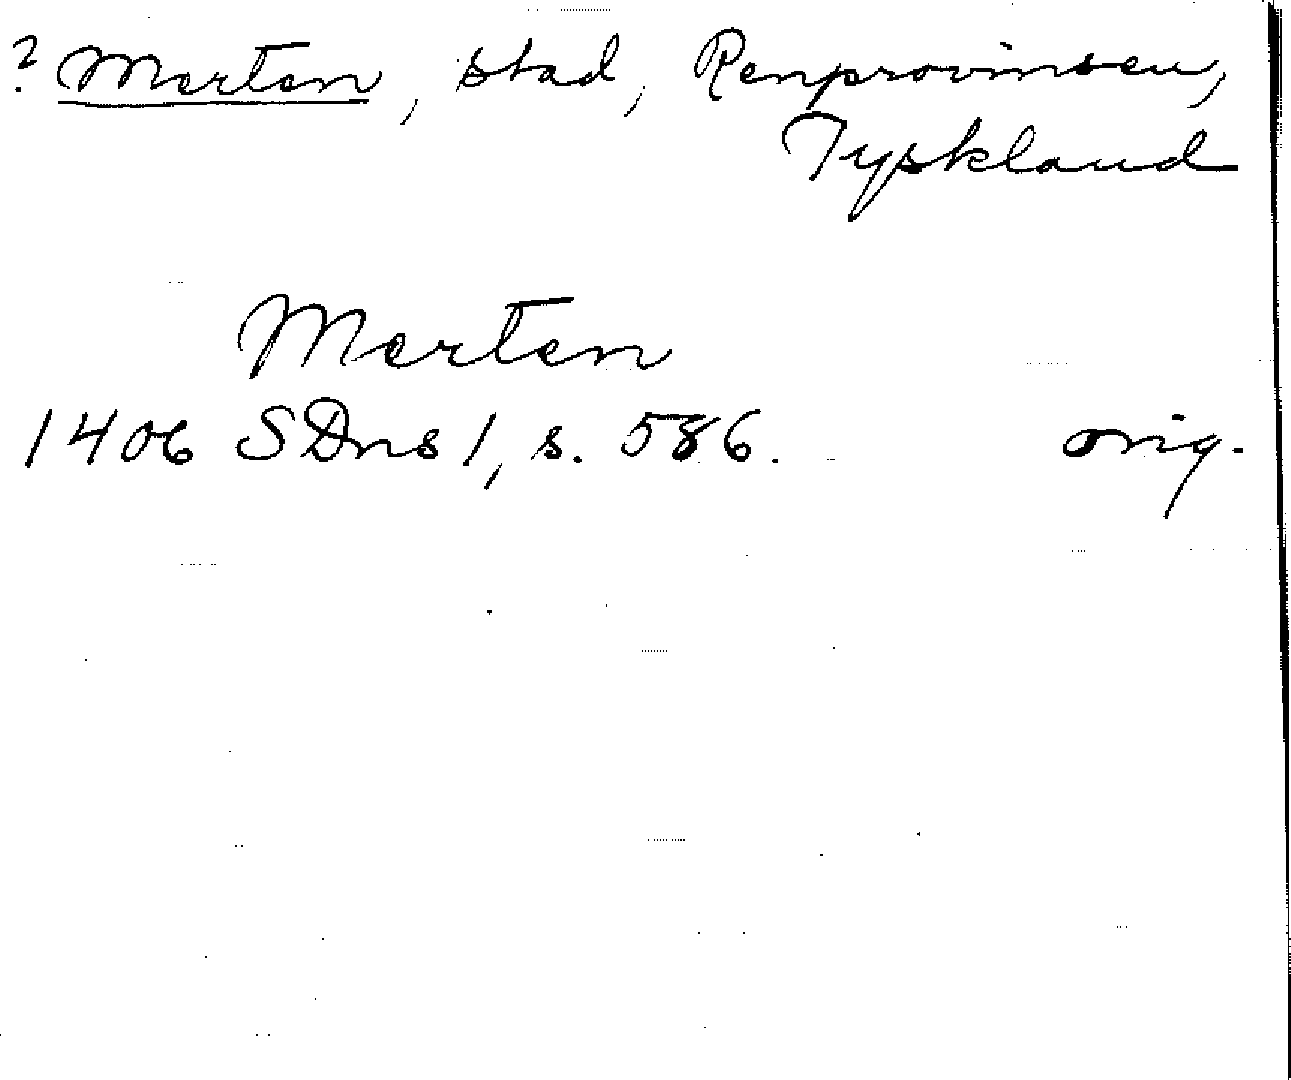 ? Merten, stad, Renprovinsen,
Tyskland
Merten
1406 SDns 1, s. 586. orig.